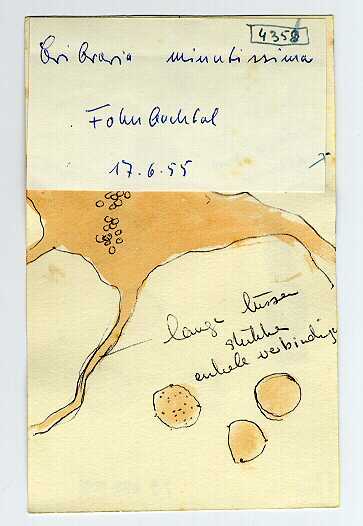 4358
Cribraria minutissima
17.6.55
lange tussen
stukken
enkele verbindige